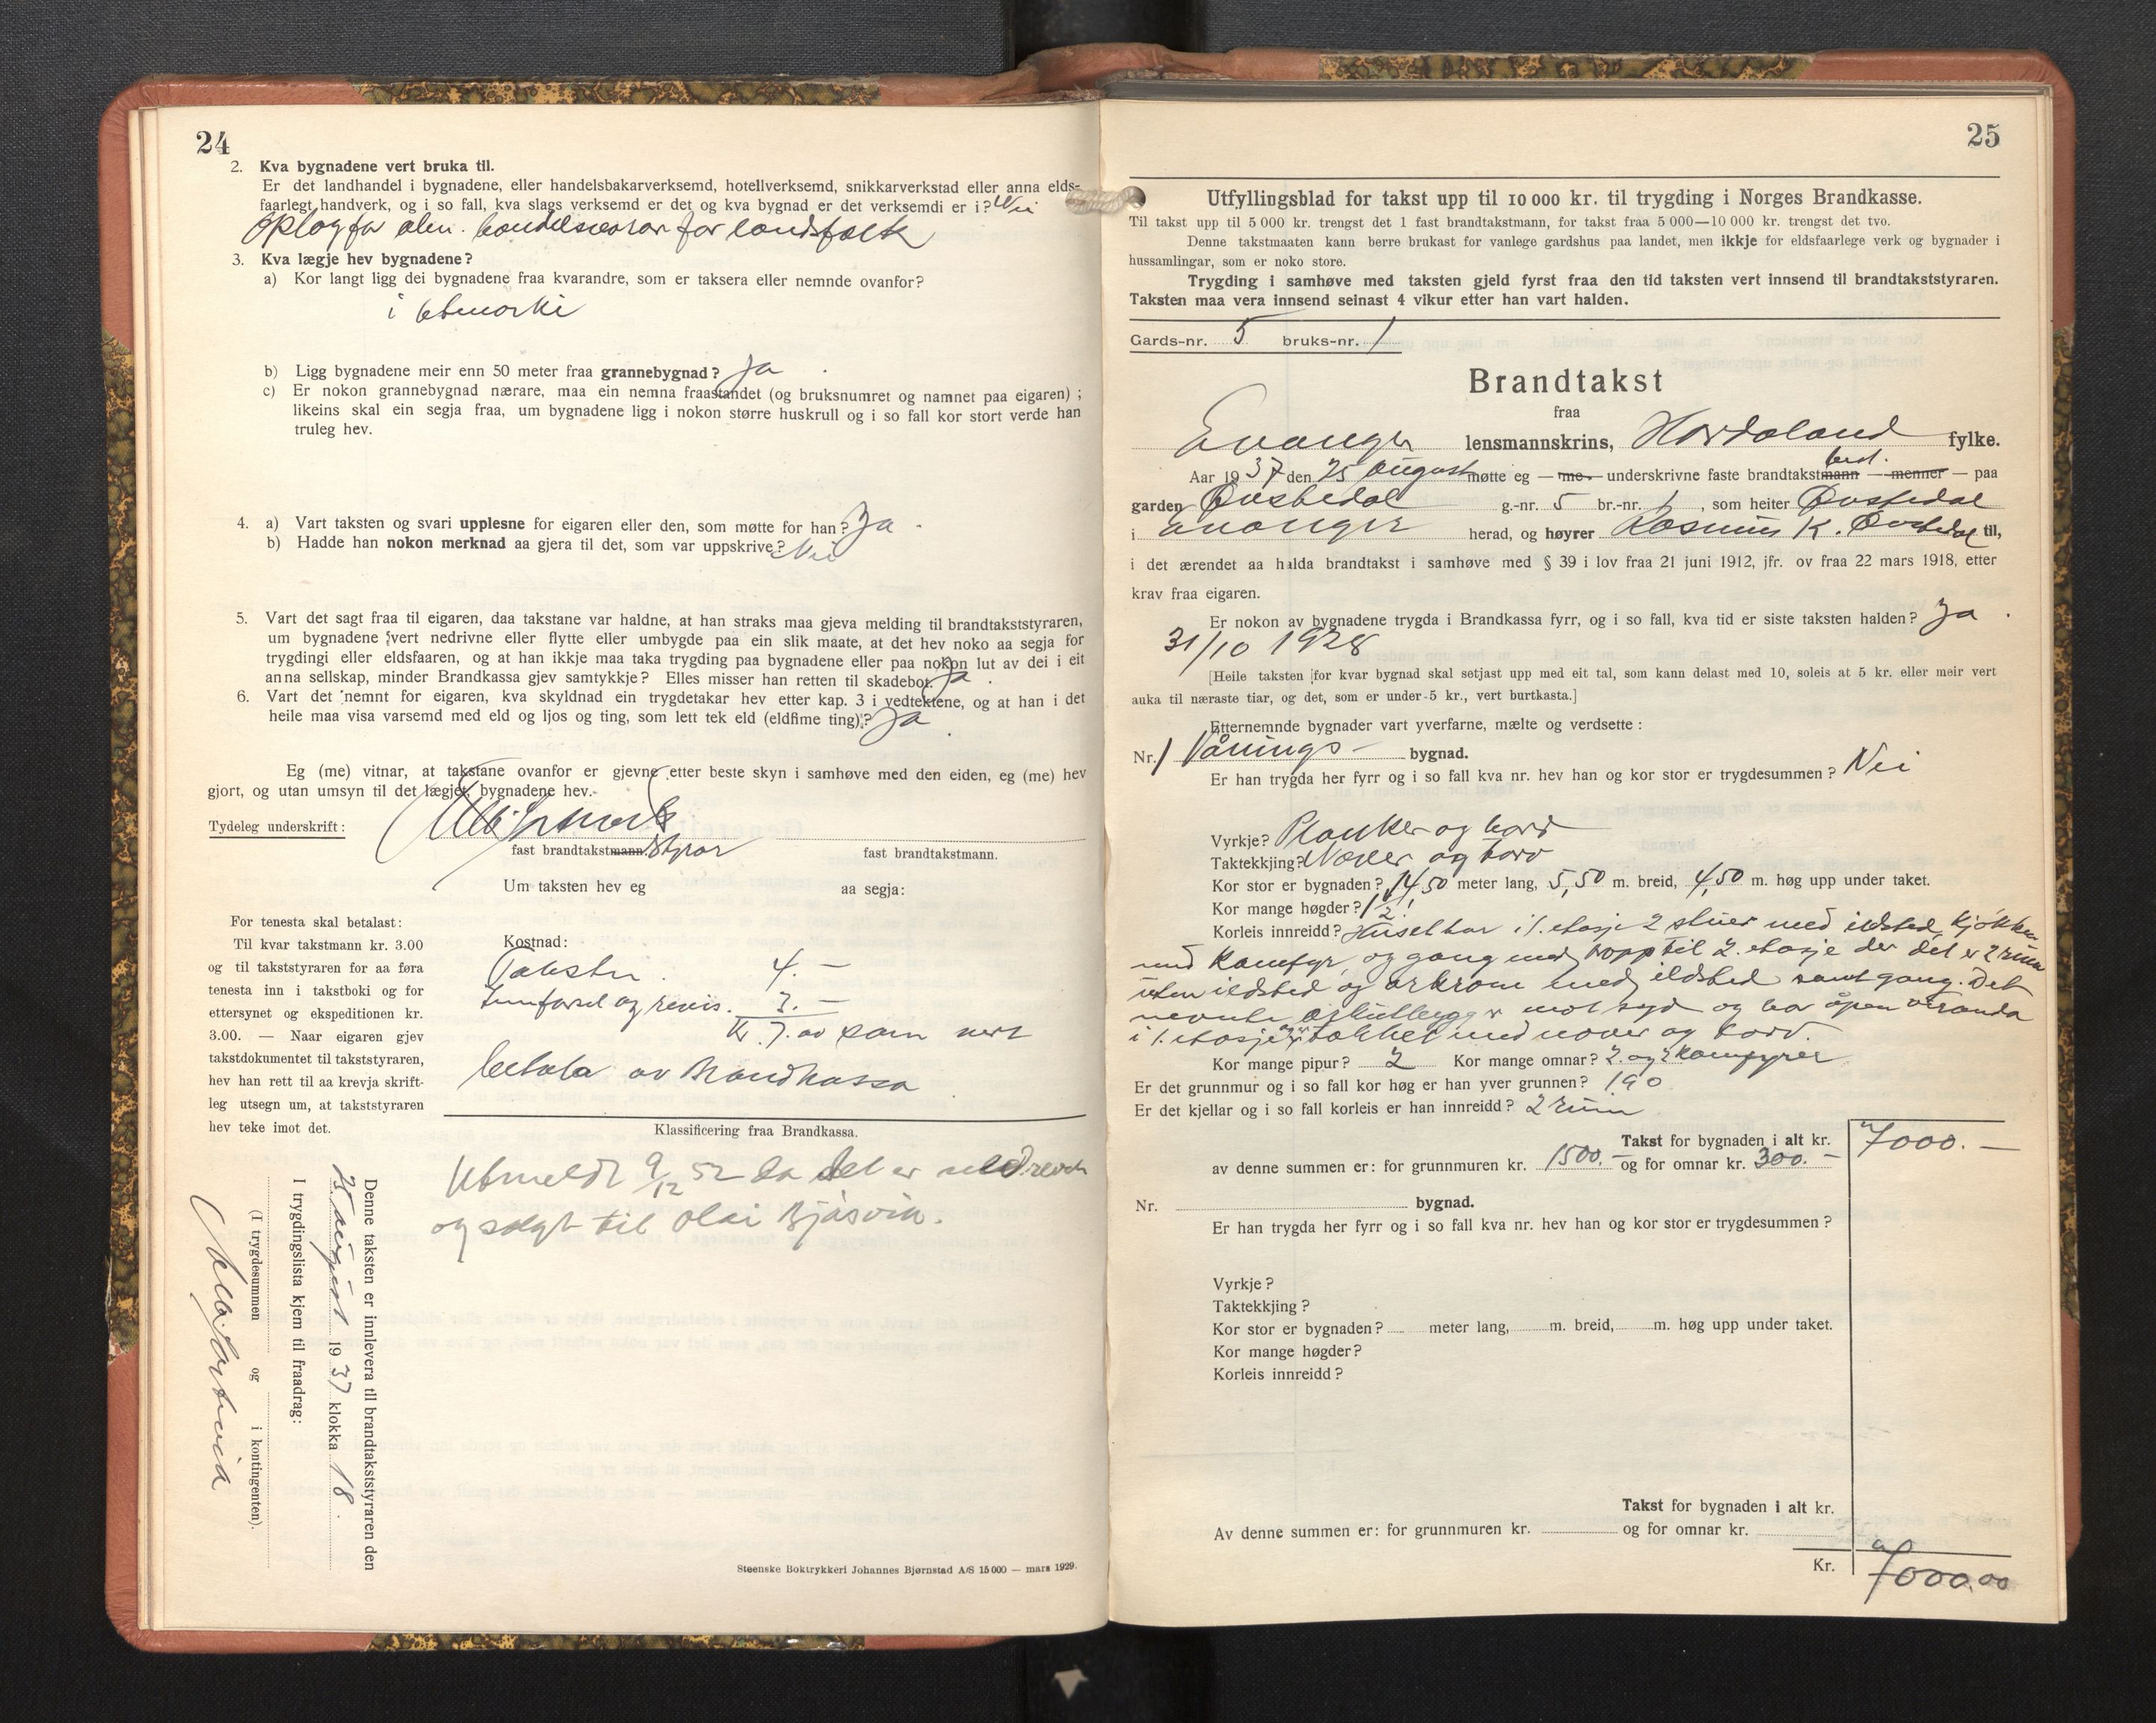 24
2. Kva bygnadene vert bruka til.
Er det landhandel i bygnadene, eller handelsbakarverksemd, hotellverksemd, snikkarverkstad eller anna elds-
faarlegt handverk, og i so fall, kva slags verksemd er det og kva bygnad er det verksemdi er i? Nei
Oplag for alm. handelsvaror for landsfolk
3. Kva lægje hev bygnadene?
a) Kor langt ligg dei bygnadene fraa kvarandre, som er taksera eller nemnde ovanfor?
i utmarki
b) Ligg bygnadene meir enn 50 meter fraa grannebygnad? Ja
c) Er nokon grannebygnad nærare, maa ein nemna fraastandet (og bruksnumret og namnet paa eigaren) ;
likeins skal ein segja fraa, um bygnadene ligg i nokon større huskrull og i so fall kor stort verde han
truleg hev.
4. a) Vart taksten og svari upplesne for eigaren eller den, som møtte for han? Ja
b) Hadde han nokon merknad aa gjera til det, som var uppskrive? Nei
5. Vart det sagt fraa til eigaren, daa takstane var haldne, at han straks maa gjeva melding til brandtakststyraren,
um bygnadene vert nedrivne eller flytte eller umbygde paa ein slik maate, at det hev noko aa segja for
trygdingi eller eldsfaaren, og at han ikkje maa taka trygding paa bygnadene eller paa nokon lut av dei i eit
anna sellskap, minder Brandkassa gjev samtykkje? Elles misser han retten til skadebot. Ja
6. Vart det nemnt for eigaren, kva skyldnad ein trygdetakar hev etter kap. 3 i vedtektene, og at han i det
heile maa visa varsemd med eld og ljos og ting, som lett tek eld (eldfime ting)? Ja
Eg (me) vitnar, at takstane ovanfor er gjevne etter beste skyn i samhøve med den eiden, eg (me) hev
gjort, og utan umsyn til det lægjet, bygnadene hev.
Tydeleg underskrift:
fast brandtakstmann. styrar fast brandtakstmann.
Um taksten hev eg aa segja:
For tenesta skal betalast:
Til kvar takstmann kr. 3.00
og til takststyraren for aa føra
tenesta inn i takstboki og for
ettersynet og ekspeditionen kr.
3.00. — Naar eigaren gjev
takstdokumentet til takststyraren,
hev han rett til aa krevja skrift-
leg utsegn um, at takststyraren
hev teke imot det.
Kostnad:
Taksten 4.—
Innførsel og revis. 3.—
Kr. 7.00 som vert
betala av Brandkassa
Klassificering fraa Brandkassa.
Utmeldt 9/12 52 da det er nedreven
og solgt til Olai Bjåsvik.
Denne taksten er innlevera til brandtakststyraren den
25 august 1937 klokka 18.
I trygdingslista kjem til fraadrag:
(I trygdesummen og i kontingenten).
Steenske Boktrykkeri Johannes Bjørnstad A/S 15 000 — mars 1929.
25
Utfyllingsblad for takst upp til 10 000 kr. til trygding i Norges Brandkasse.
Til takst upp til 5 000 kr. trengst det 1 fast brandtakstmann, for takst fraa 5 000—10 000 kr. trengst det tvo.
Denne takstmaaten kann berre brukast for vanlege gardshus paa landet, men ikkje for eldsfaarlege verk og bygnader i
hussamlingar, som er noko store.
Trygding i samhøve med taksten gjeld fyrst fraa den tid taksten vert innsend til brandtakststyraren.
Taksten maa vera innsend seinast 4 vikur etter han vart halden.
Gards-nr. 5 bruks-nr. 1
Brandtakst
fraa
Evanger lensmannskrins, Hordaland fylke.
Aar 1937 den 25 august møtte eg — me — underskrivne faste brandtakstmann — menner — paa
garden Øvstedal g.-nr. 5 br.-nr. 1, som heiter Øvstedal
i Evanger herad, og høyrer Rasmus K. Øvstedal til,
i det ærendet aa halda brandtakst i samhøve med § 39 i lov fraa 21 juni 1912, jfr. ov fraa 22 mars 1918, etter
krav fraa eigaren.
Er nokon av bygnadene trygda i Brandkassa fyrr, og i so fall, kva tid er siste taksten halden? Ja
31/10 1928
[Heile taksten for kvar bygnad skal setjast upp med eit tal, som kann delast med 10, soleis at 5 kr. eller meir vert
auka til næraste tiar, og det, som er under 5 kr., vert burtkasta.]
Etternemnde bygnader vart yverfarne, mælte og verdsette :
Nr. 1 Vånings- bygnad.
Er han trygda her fyrr og i so fall kva nr. hev han og kor stor er trygdesummen? Nei
Vyrkje? Planker og bord
Taktekkjing? Never og torv
Kor stor er bygnaden? 14,50 meter lang, 5,50 m. breid, 4,50 m. høg upp under taket.
Kor mange høgder? 1 1/2
Korleis innreidd? Huset har i 1. etasje 2 stuer med ildsted, kjøkken
med komfyr, og gang med tropp til 2. etasje der det er 2 rum
uten ildsted og arkrom med ildsted samt gang. Det
nevnte mot syd og har åpen veranda
i 1. etasje og er tekket med never og torv.
Kor mange pipur? 2 Kor mange omnar? 2 og 2 komfyrer
Er det grunnmur og i so fall kor høg er han yver grunnen? 190
Er det kjellar og i so fall korleis er han innreidd? 2 rum
Takst for bygnaden i alt kr. 7000.—
av denne summen er: for grunnmuren kr. 1500.— og for omnar kr. 300.—
Nr. bygnad.
Er han trygda her fyrr og i so fall kva nr. hev han og kor stor er trygdesummen?
Vyrkje?
Taktekkjing?
Kor stor er bygnaden? meter lang, m. breid, m. høg upp under taket.
Kor mange høgder?
Korleis innreidd?
Takst for bygnaden i alt kr.
Av denne summen er: for grunnmuren kr. og for omnar kr.
Kr. 7000.00